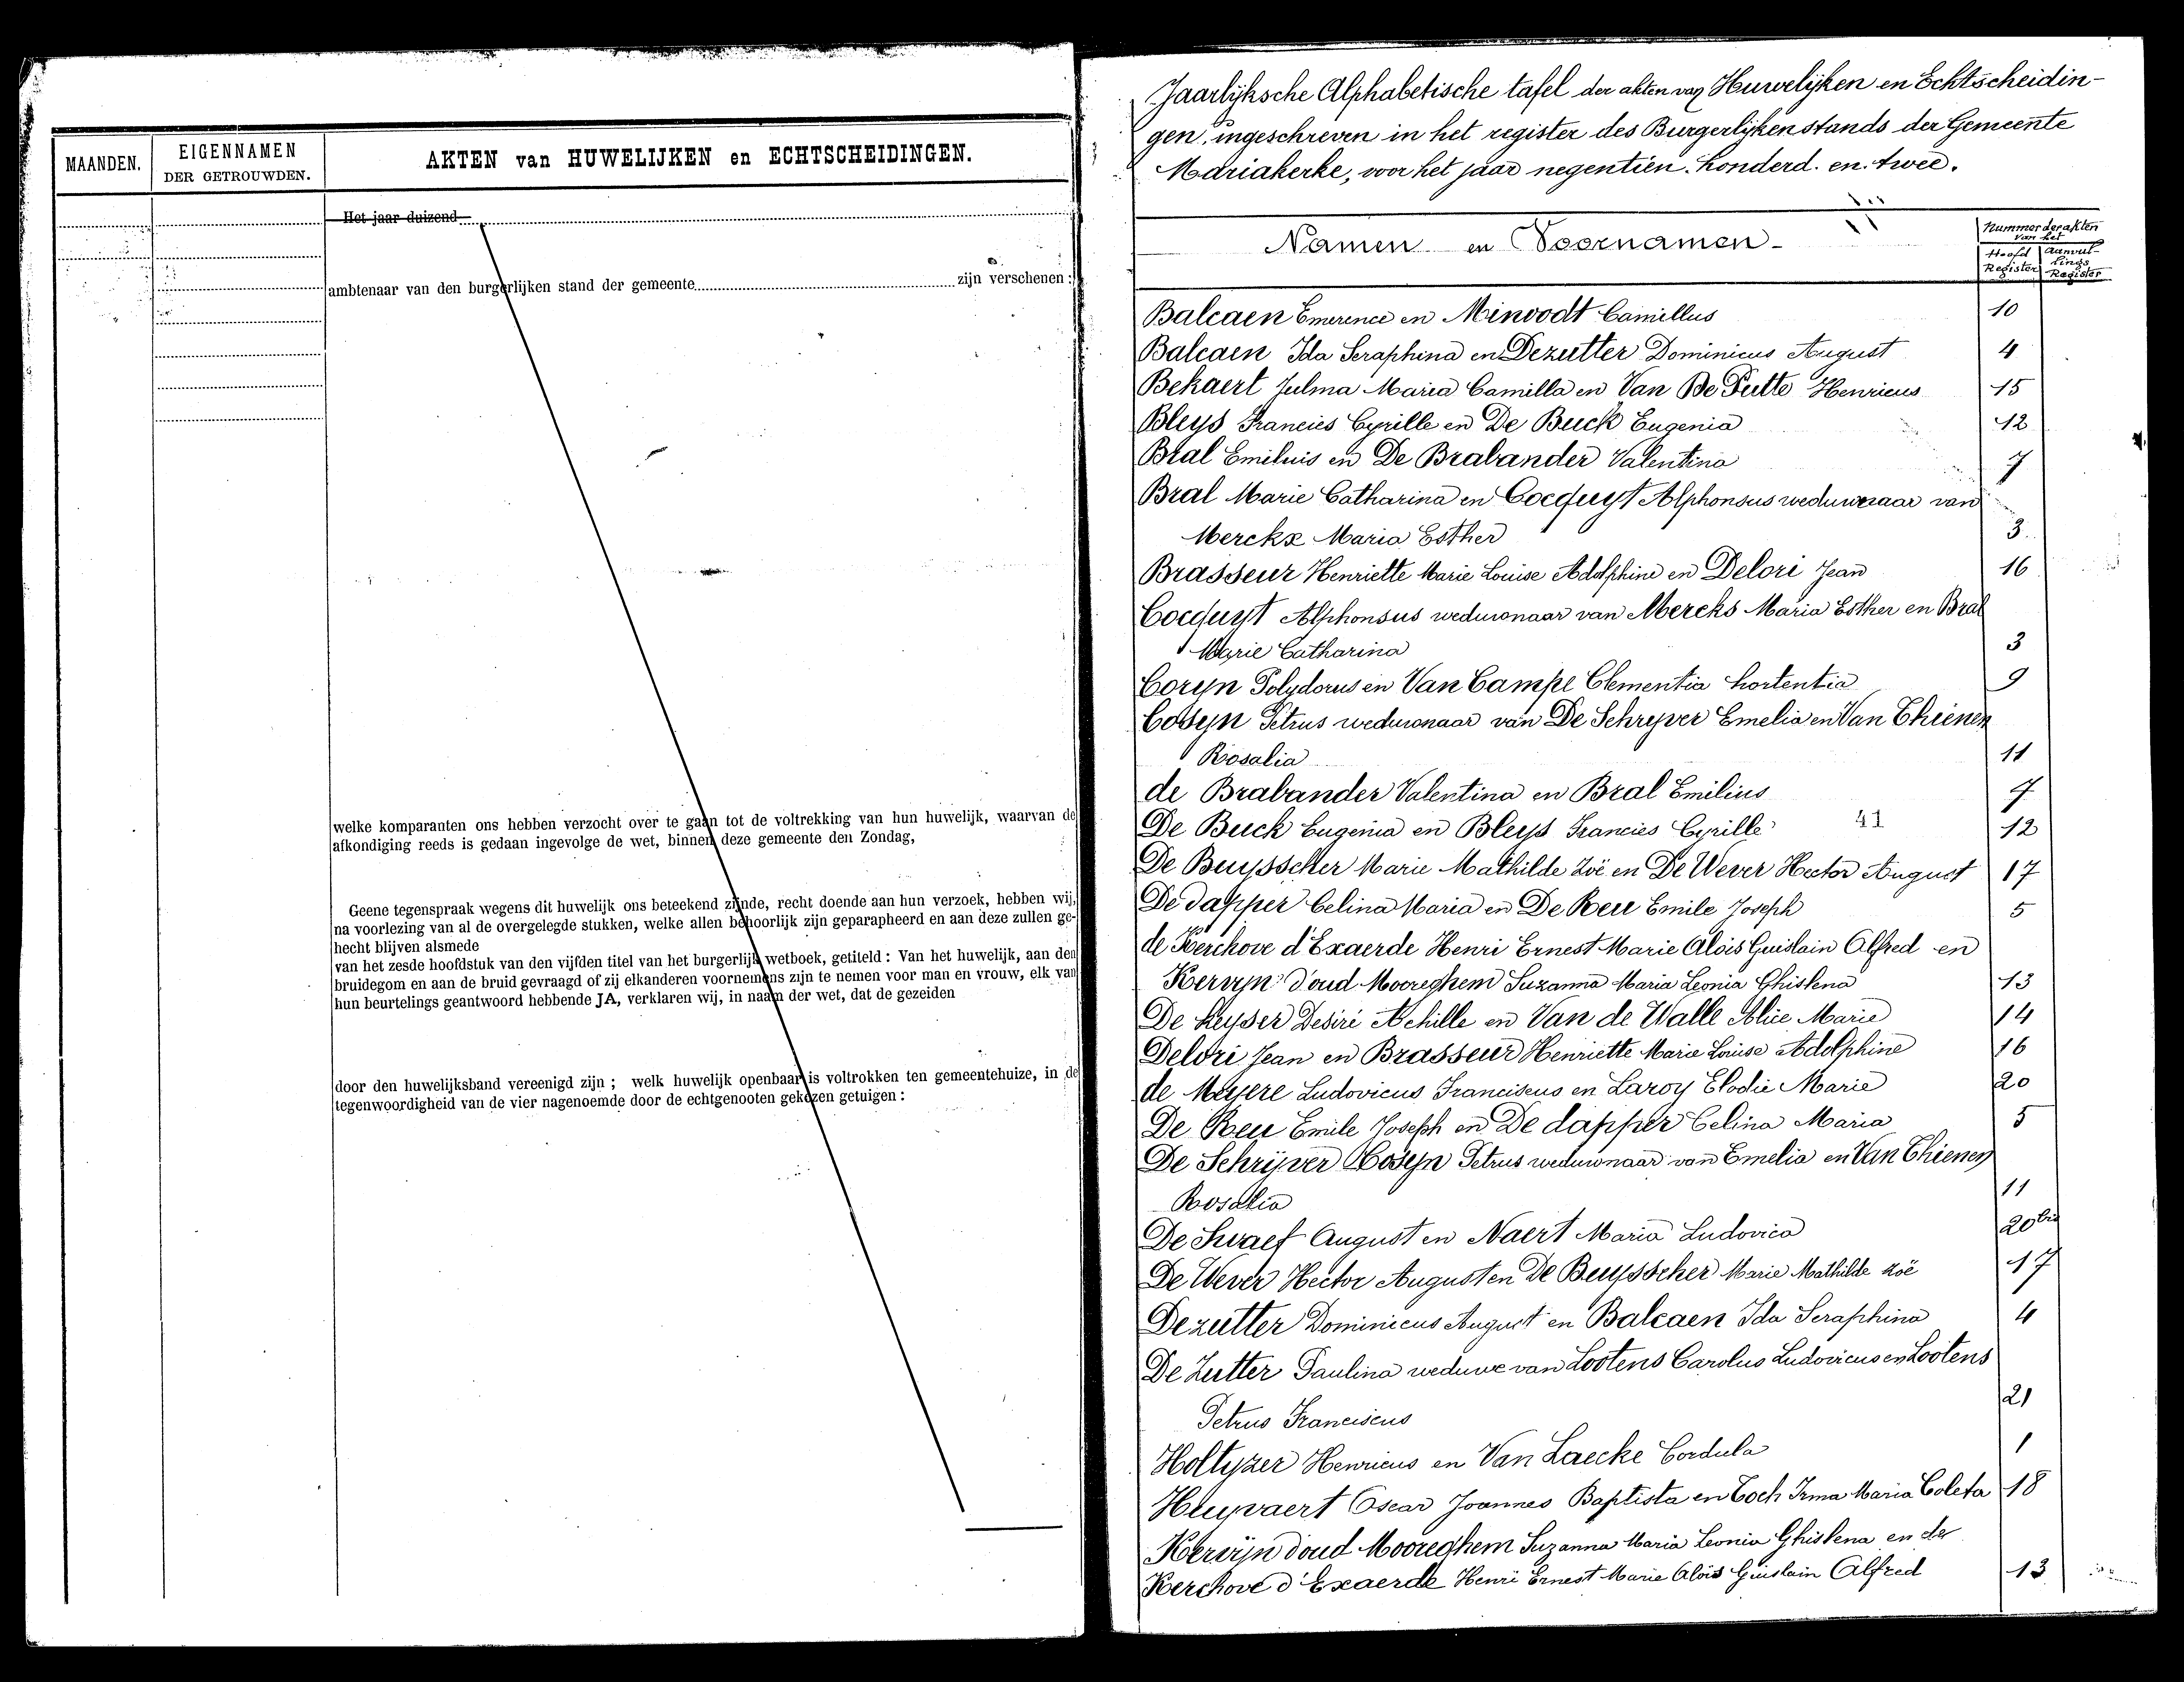 MAANDEN.
EIGENNAMEN
DER GETROUWDEN.
AKTEN van HUWELIJKEN en ECHTSCHEIDINGEN.
Het jaar duizend
ambtenaar van den burgerlijken stand der gemeente zijn verschenen :
welke komparanten ons hebben verzocht over te gaan tot de voltrekking van hun huwelijk, waarvan de
afkondiging reeds is gedaan ingevolge de wet, binnen deze gemeente den Zondag,
Geene tegenspraak wegens dit huwelijk ons beteekend zijnde, recht doende aan hun verzoek, hebben wij,
na voorlezing van al de overgelegde stukken, welke allen behoorlijk zijn geparapheerd en aan deze zullen ge-
hecht blijven alsmede
van het zesde hoofdstuk van den vijfden titel van het burgerlijk wetboek, getiteld : Van het huwelijk, aan den
bruidegom en aan de bruid gevraagd of zij elkanderen voornemens zijn te nemen voor man en vrouw, elk van
hun beurtelings geantwoord hebbende JA, verklaren wij, in naam der wet, dat de gezeiden
door den huwelijksband vereenigd zijn ; welk huwelijk openbaar is voltrokken ten gemeentehuize, in de
tegenwoordigheid van de vier nagenoemde door de echtgenooten gekozen getuigen :
Jaarlijksche Alphabetische tafel der akten van Huwelijken en Echtscheidin-
gen, ingeschreven in het register des Burgerlijkenstands der Gemeente
Mariakerke, voor het jaar negentien. honderd. en. twee.
Namen en Voornamen
Nummer der akten
van het
Hoofd Register
Aanvul-lings Register
Balcaen Emerence en Minvodt Camillus 10
Balcaen Ida Seraphina en Dezutter Dominicus August 4
Bekaert Julma Maria Camilla en Van De Putte Henricus 15
Bleys Francies Cyrille en De Buck Eugenia 12
Bral Emilius en De Brabander Valentina 7
Bral Marie Catharina en Cocquyt Alphonsus weduwnaar van
Merckx Maria Esther 3
Brasseur Henriette Marie Louise Adolphine en Delori Jean 16
Cocquyt Alphonsus weduwnaar van Mercks Maria Esther en Bral
Marie Catharina 3
Coryn Polydorus en Van Campe Clementia hortentia 9
Cosyn Petrus weduwnaar van De Schryver Emelia en Van Thienen
Rosalia 11
de Brabander Valentina en Bral Emilius 7
De Buck Eugenia en Bleys Francies Cyrille 41 12
De Buysscher Marie Mathilde Zoë en De Wever Hector August 17
De dapper Celina Maria en De Reu Emile Joseph 5
de Kerchove d'Exaerde Henri Ernest Marie Aloïs Guislain Alfred en
Kervyn d'oud Mooreghem Suzanna Maria Leonia Ghislena 13
De Keyser Desiré Achille en Van de Walle Alice Marie 14
Delori Jean en Brasseur Henriette Marie Louise Adolphine 16
de Meyere Ludovicus Franciscus en Laroy Elodie Marie 20
De Reu Emile Joseph en De dapper Celina Maria 5
De Schrijver Cosyn Petrus weduwnaar van Emelia en Van Thienen
Rosalia 11
De Swaef August en Naert Maria Ludovica 20bis
De Wever Hector August en De Buysscher Marie Mathilde Zoë 17
Dezutter Dominicus August en Balcaen Ida Seraphina 4
De Zutter Paulina weduwe van Lootens Carolus Ludovicus en Lootens
Petrus Franciscus 21
Holtyzer Henricus en Van Laecke Cordula 1
Heyvaert Oscar Joannes Baptista en Coch Irma Maria Coleta 18
Kervyn d'oud Mooreghem Suzanna Maria Leonia Ghislena en de
Kerchove d'Exaerde Henri Ernest Marie Aloïs Guislain Alfred 13